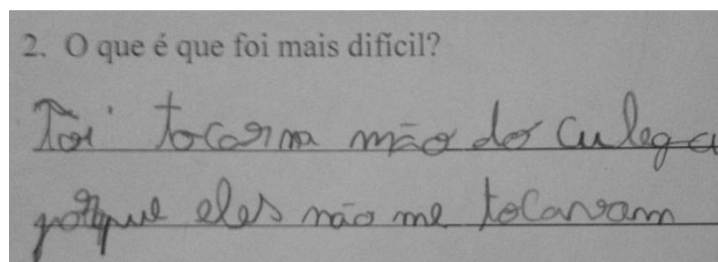 2. O que é que foi mais difícil?
Foi tocar na mão do culega
porque eles não me tocavam